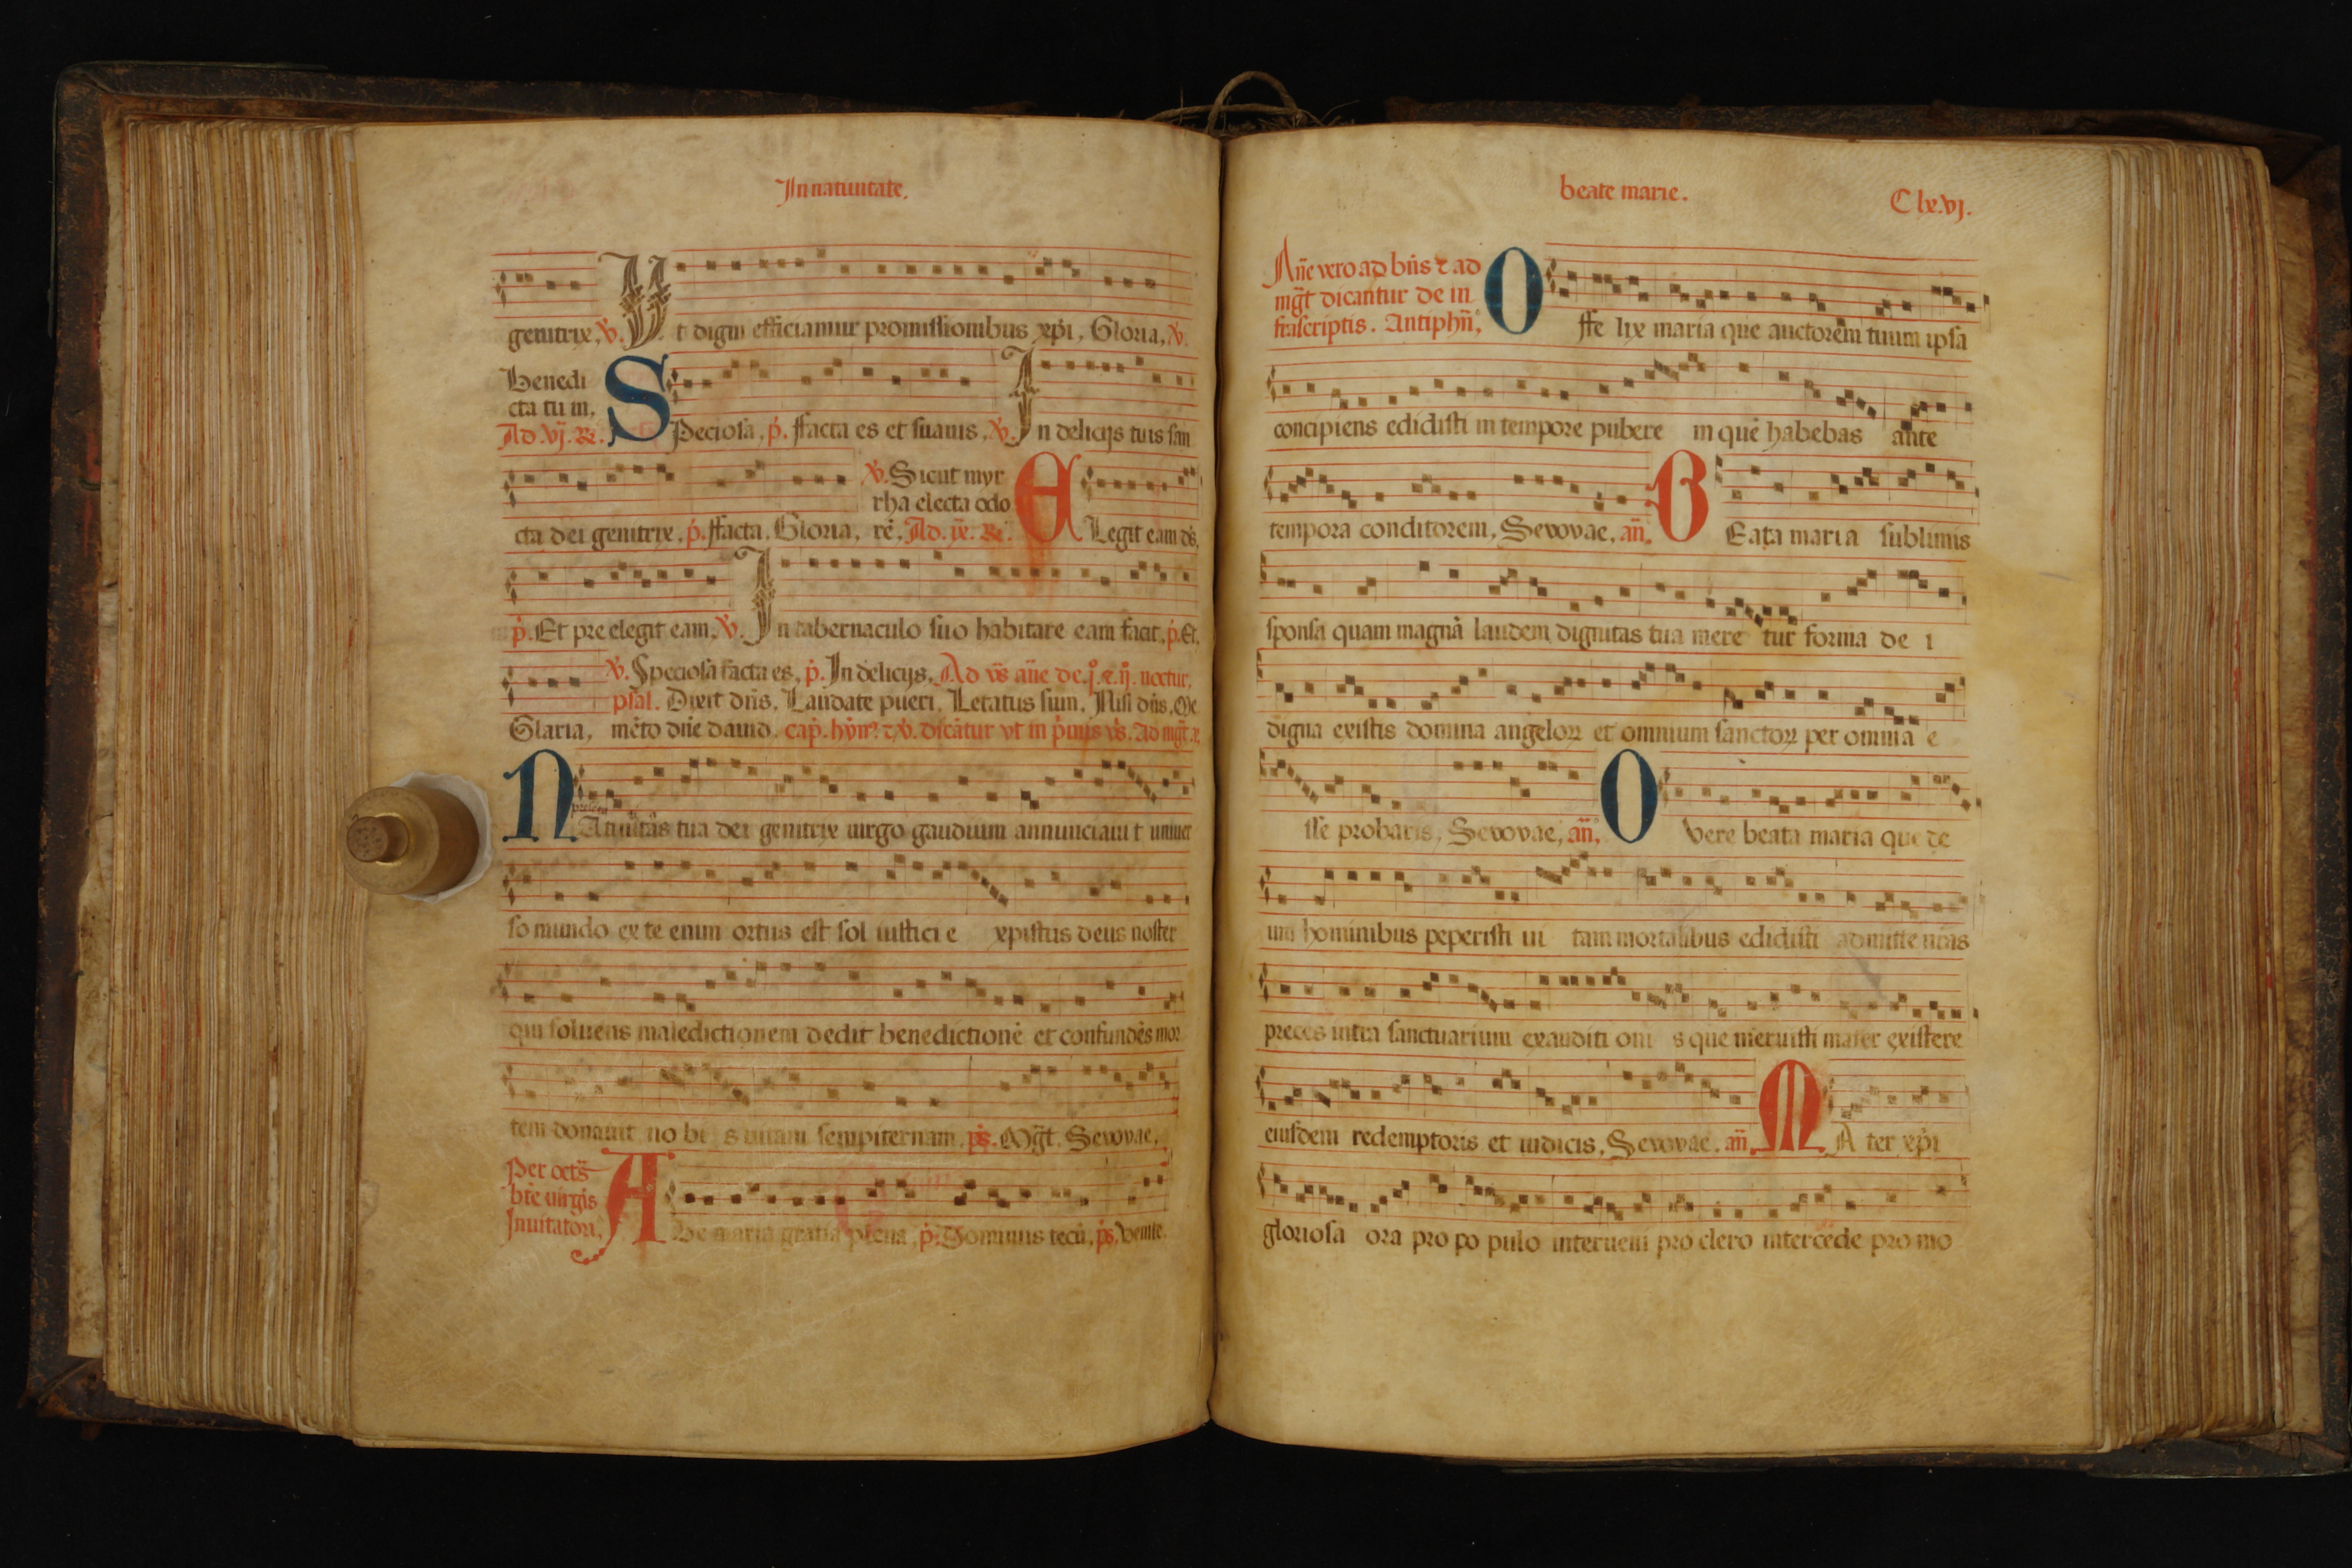 In natiuitate.
genitrix, ℣. Ut digni efficiamur promissionibus xp̄i, Gloria, ℣.
Benedi
cta tu in,
Ad .vj. ℟. SPeciosa, p̄. ffacta es et suauis, ℣. In delicijs tuis san
cta dei genitrix, p̄. ffacta, Gloria,
℣. Sicut myr
rha electa odo
rē, Ad .ix. ℟. ELegit eam dn̄s,
p̄. Et pre elegit eam, ℣. In tabernaculo suo habitare eam facit, p̄. Et,
℣. Speciosa facta es, p̄. In delicijs, Ad vs̄ an̄e de .j. et .ij. noctur,
psal. Dixit dn̄s, Laudate pueri, Letatus sum, Nisi dn̄s, Me
Glaria, mēto dn̄e dauid. cap̄. hỹm. et ℣. dicātur vt in p̄mis vs̄. Ad mḡt
NAtiuitas tua dei genitrix uirgo gaudium annunciauit uniuer
so mundo ex te enim ortus est sol iusticie xpistus deus noster
qui soluens maledictionem dedit benedictionē et confundēs mor
tem donauit nobis uitam sempiternam. ps̄. Mḡt. Sevovae,
Per octs̄
bt̄e uirgīs
Inuitatori,
AVe maria gratia plena, p̄. Dominus tecū, ps̄. Venite.
beate marie.
C lx.vj.
An̄e vero ad bn̄s et ad
mḡt dicantur de in
frascriptis. Antiphn̄,
O ffelix maria que auctorem tuum ipsa
concipiens edidisti in tempore pubere in quē habebas ante
tempora conditorem, Sevovae, an̄, BEata maria sublimis
sponsa quam magnā laudem dignitas tua meretur forma dei
digna existis domina angeloꝝ et omnium sanctoꝝ per omnia e
sse probaris, Sevovae, an̄, O vere beata maria que de
um hominibus peperisti uitam mortalibus edidisti admitte nr̄as
preces intra sanctuarium exauditionis que meruisti mater existere
eiusdem redemptoris et iudicis, Sevovae. an̄, MAter xp̄i
gloriosa ora pro populo interueni pro clero intercede pro mo